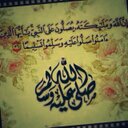 ان الله وملائكته يصلون على النبي يا ايها الذين
آمنوا صلوا عليه وسلموا تسليما
صلى الله عليه وسلم